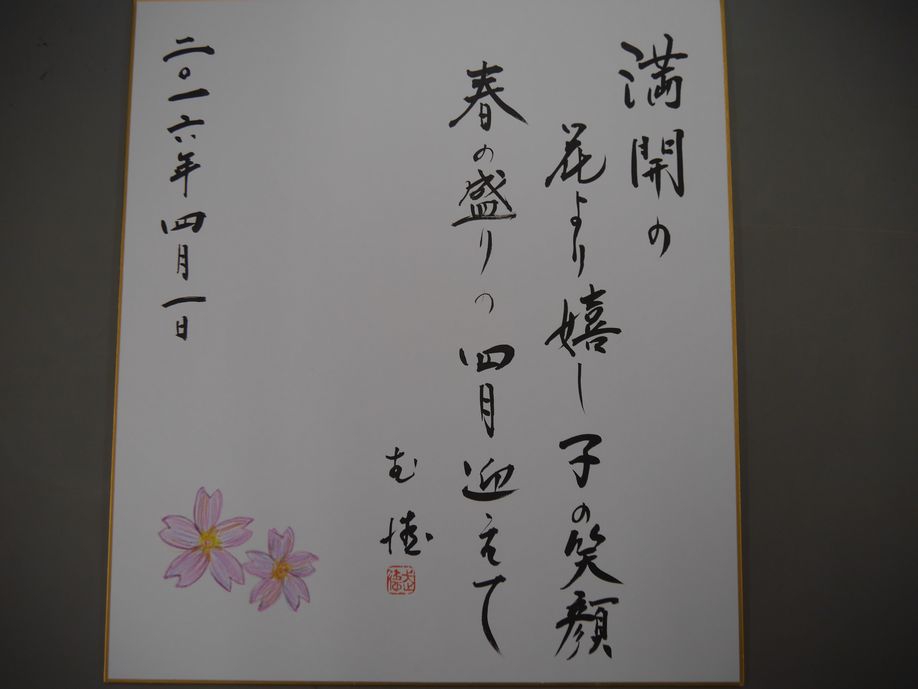 満開の
花より嬉し子の笑顔
春の盛りの四月迎えて
二〇一六年四月一日